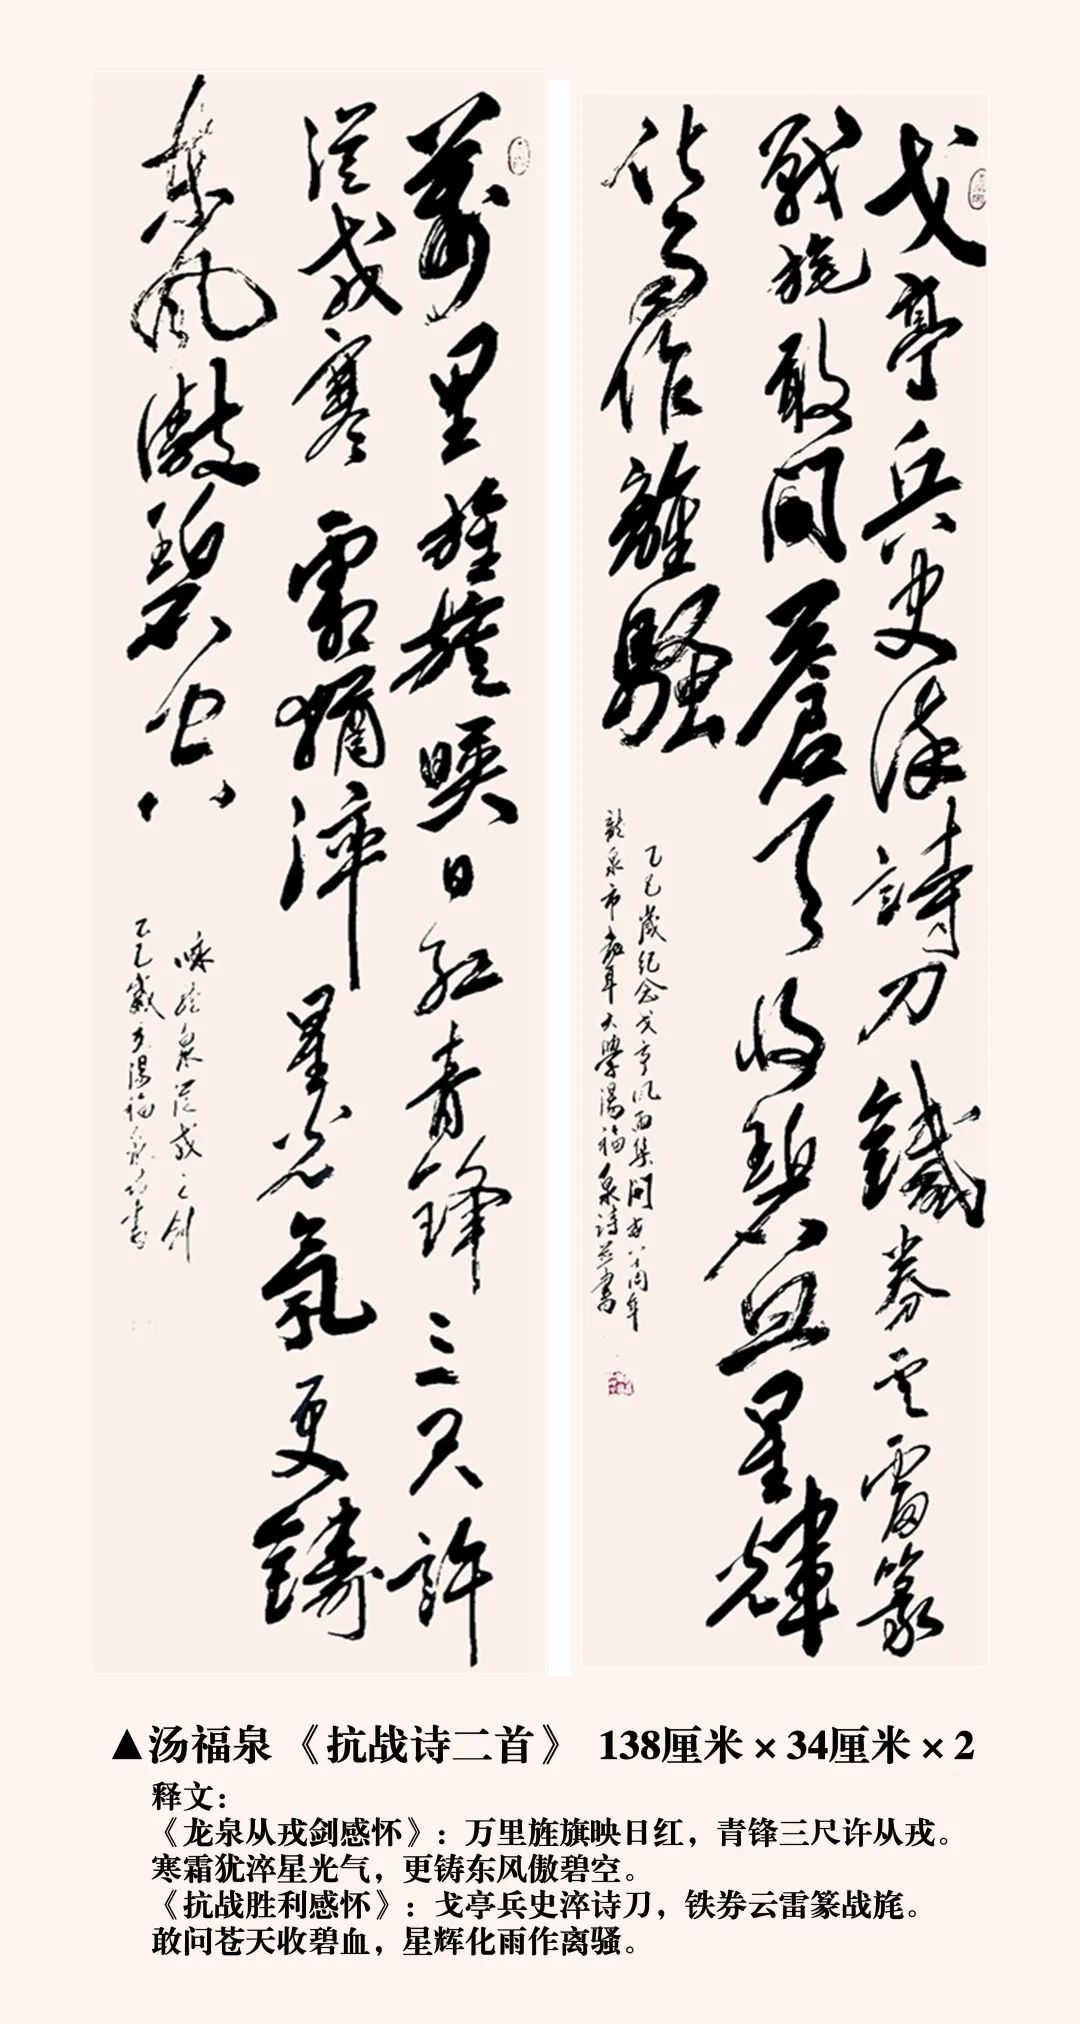 戈亭兵史淬詩刀鐵券雲雷篆
戰旄敢問蒼天收碧血星輝
化雨作離騷
乙巳歲紀念戈亭風雨集問世八十周年
龍泉市老年大學湯福泉詩並書
萬里旌旗映日紅青鋒三尺許
從戎寒霜猶淬星光氣更鑄
東風傲碧空
詠龍泉從戎之劍
乙巳歲
▲汤福泉《抗战诗二首》 138厘米×34厘米×2
释文：
《龙泉从戎剑感怀》：万里旌旗映日红，青锋三尺许从戎。
寒霜犹淬星光气，更铸东风傲碧空。
《抗战胜利感怀》：戈亭兵史淬诗刀，铁券云雷篆战旄。
敢问苍天收碧血，星辉化雨作离骚。